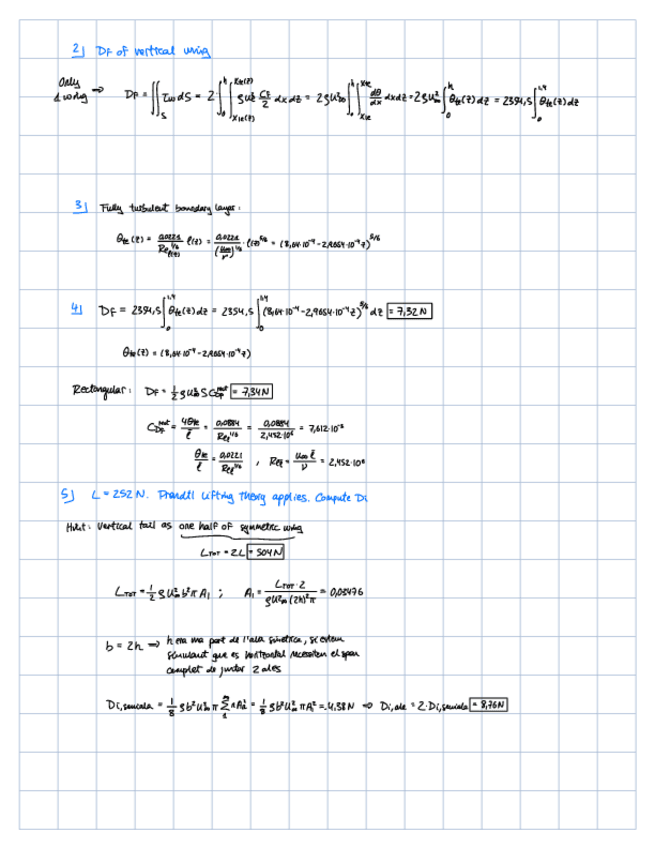 2) DF of vertical wing
Only
1 wing => DF = ∬_S τw dS = 2·∫_0^h ∫_{xle(z)}^{xte(z)} ρu∞² Cf/2 dx dz = 2ρu∞² ∫_0^h ∫_{xle}^{xte} dθ/dx dx dz = 2ρu∞² ∫_0^h θte(z) dz = 2354,5 ∫_0^{1,4} θte(z) dz
3) Fully turbulent boundary layer:
θte(z) = 0,0221/Re_{l(z)}^{1/6} l(z) = 0,0221/(u∞/ν)^{1/6} · l(z)^{5/6} = (8,64·10⁻⁴ - 2,9654·10⁻⁴ z)^{5/6}
4) DF = 2354,5 ∫_0^{1,4} θte(z) dz = 2354,5 ∫_0^{1,4} (8,64·10⁻⁴ - 2,9654·10⁻⁴ z)^{5/6} dz = 7,32 N
θte(z) = (8,64·10⁻⁴ - 2,9654·10⁻⁴ z)
Rectangular: DF = 1/2 ρu∞² S CDF = 7,34 N
CDF = 4θte/l = 0,0884/Rel^{1/6} = 0,0884/2,452·10⁶ = 7,612·10⁻³
θte/l = 0,0221/Rel^{1/6} , Rel = u∞ l/ν = 2,452·10⁶
5) L = 252 N. Prandtl Lifting theory applies. Compute Di
Hint: Vertical tail as one half of symmetric wing
LTOT = 2L = 504 N
LTOT = 1/2 ρu∞² b² π A1 ; A1 = LTOT·2/ρu∞² (2h)² π = 0,03476
b = 2h => h era una part de l'ala simètrica, si estem
simulant que es horitzontal necessitem el span
complet de juntar 2 ales
Di,semiala = 1/8 ρb² u∞² π Σ_1^∞ nAn² = 1/8 ρb² u∞² π A1² = 4,38 N => Di,ala = 2·Di,semiala = 8,76 N